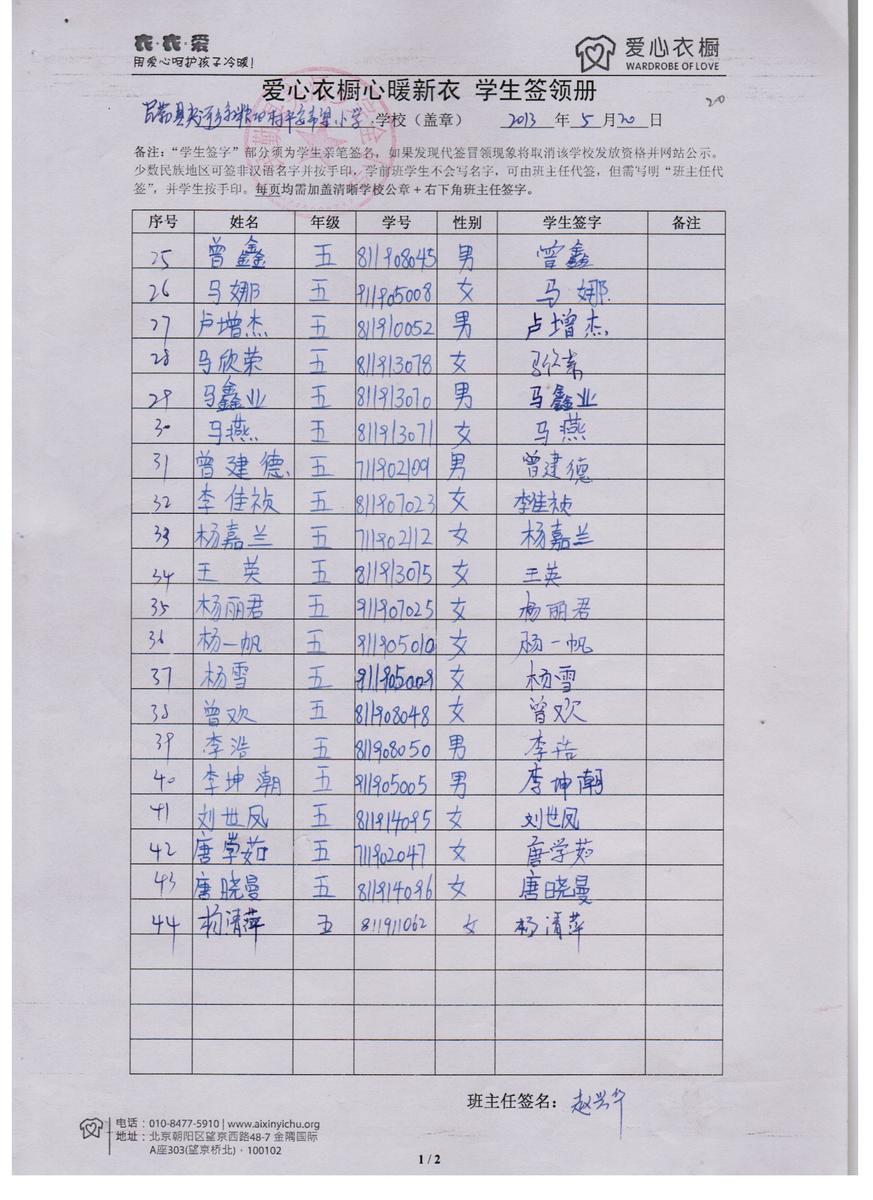 衣·衣·爱
用爱心呵护孩子冷暖!
爱心衣橱
WARDROBE OF LOVE
爱心衣橱心暖新衣 学生签领册
20
小学 学校（盖章） 2013 年 5 月 20 日
备注：“学生签字”部分须为学生亲笔签名，如果发现代签冒领现象将取消该学校发放资格并网站公示。
少数民族地区可签非汉语名字并按手印，学前班学生不会写名字，可由班主任代签，但需写明“班主任代
签”，并学生按手印。每页均需加盖清晰学校公章+右下角班主任签字。
序号 姓名 年级 学号 性别 学生签字 备注
25 曾鑫 五 811908045 男 曾鑫
26 马娜 五 911905008 女 马娜
27 卢增杰 五 811910052 男 卢增杰
28 马欣荣 五 811913078 女
29 马鑫业 五 811913070 男 马鑫业
30 马燕 五 811913071 女 马燕
31 曾建德 五 711902109 男 曾建德
32 李佳祯 五 811907023 女 李佳祯
33 杨嘉兰 五 711902112 女 杨嘉兰
34 王英 五 811913075 女 王英
35 杨丽君 五 911907025 女 杨丽君
36 杨一帆 五 911905010 女 杨一帆
37 杨雪 五 911905009 女 杨雪
38 曾欢 五 811908048 女 曾欢
39 李浩 五 811908050 男 李浩
40 李坤潮 五 911905005 男 李坤潮
41 刘世凤 五 811914095 女 刘世凤
42 唐学茹 五 711902047 女 唐学茹
43 唐晓曼 五 811914096 女 唐晓曼
44 杨清萍 五 811911062 女 杨清萍
班主任签名：赵兴华
电话：010-8477-5910 | www.aixinyichu.org
地址：北京朝阳区望京西路48-7 金隅国际
A座303(望京桥北)·100102
1 / 2